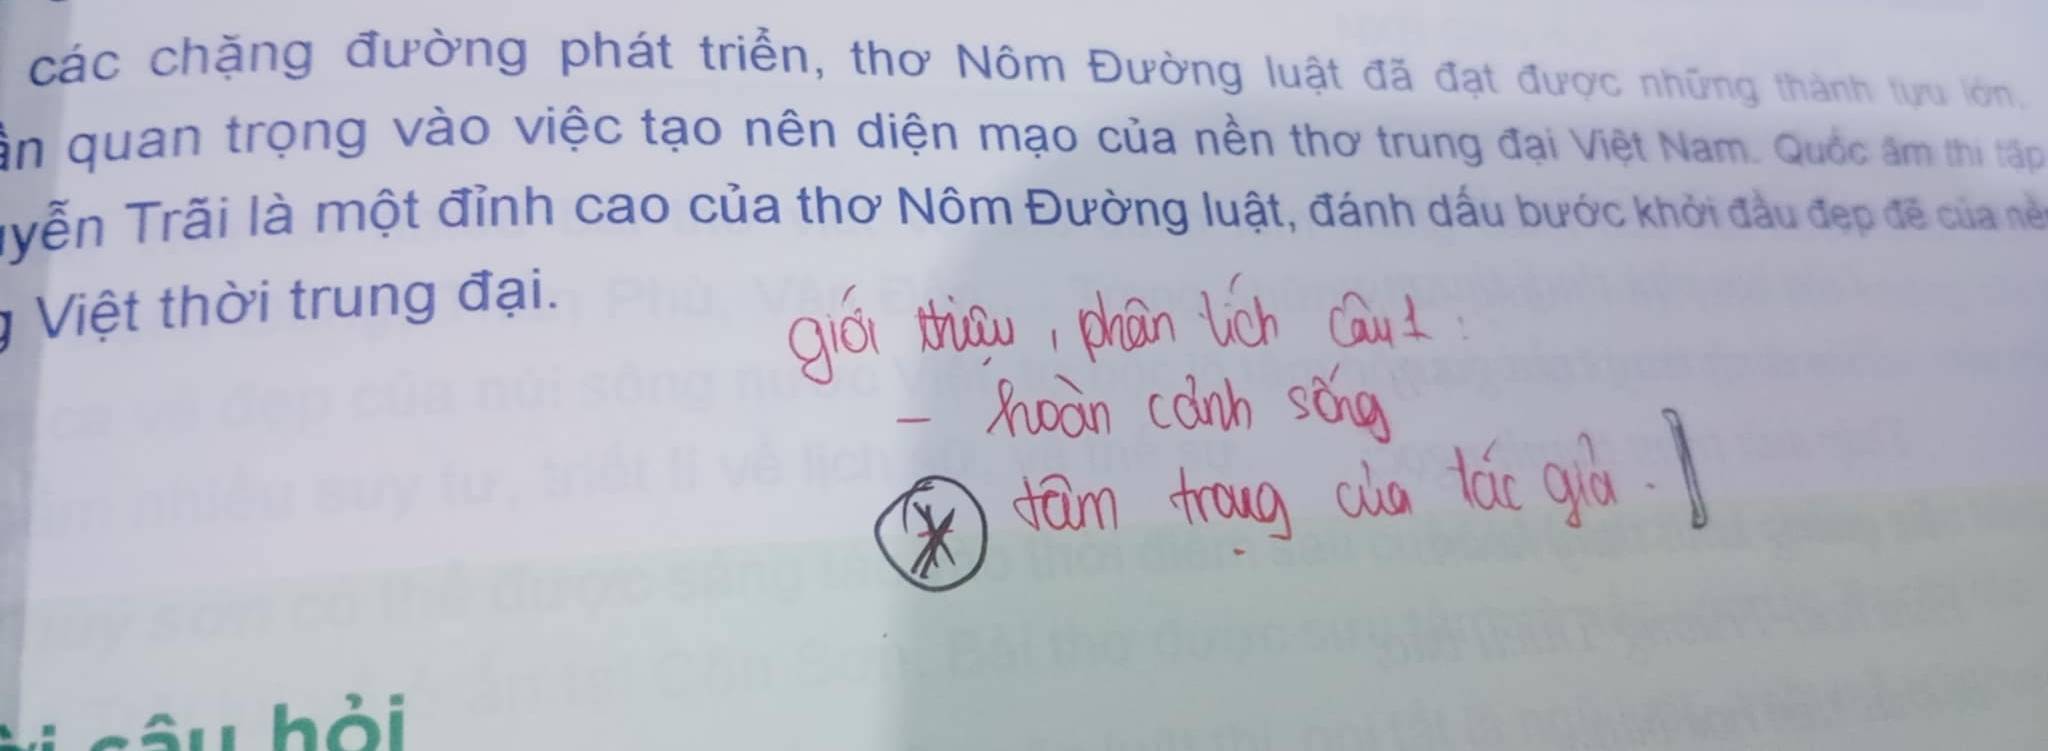 các chặng đường phát triển, thơ Nôm Đường luật đã đạt được những thành tựu lớn,
quan trọng vào việc tạo nên diện mạo của nền thơ trung đại Việt Nam. Quốc âm thi tập
Trãi là một đỉnh cao của thơ Nôm Đường luật, đánh dấu bước khởi đầu đẹp đẽ của
Việt thời trung đại.
giới thiệu, phân tích câu 1:
- hoàn cảnh sống
* tâm trạng của tác giả.
câu hỏi